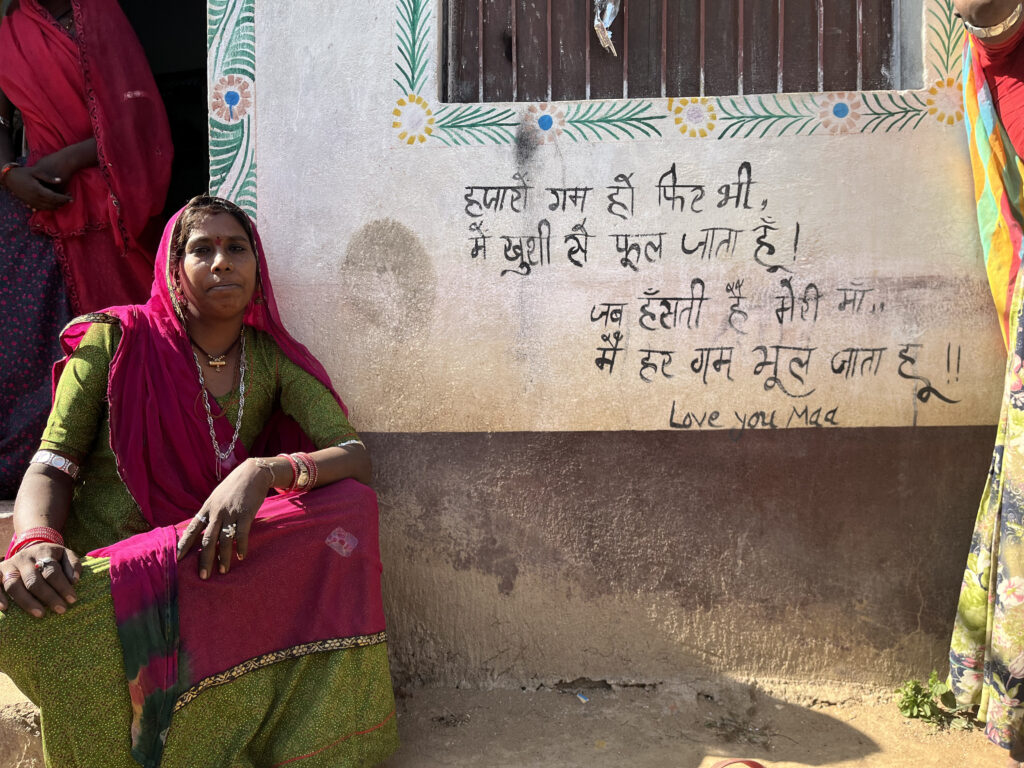 हजारों गम हो फिर भी,
मै खुशी से फूल जाता हूँ!
जब हँसती है मेरी माँ,,
मैं हर गम भूल जाता हू!!
Love you Maa